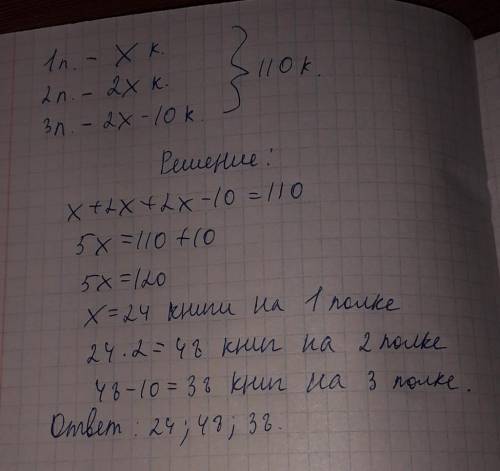 1п. - х к.
2п. - 2х к.
3п. - 2х - 10 к. } 110 к.
Решение:
х + 2х + 2х - 10 = 110
5х = 110 + 10
5х = 120
х = 24 книги на 1 полке
24 · 2 = 48 книг на 2 полке
48 - 10 = 38 книг на 3 полке.
Ответ: 24; 48; 38.